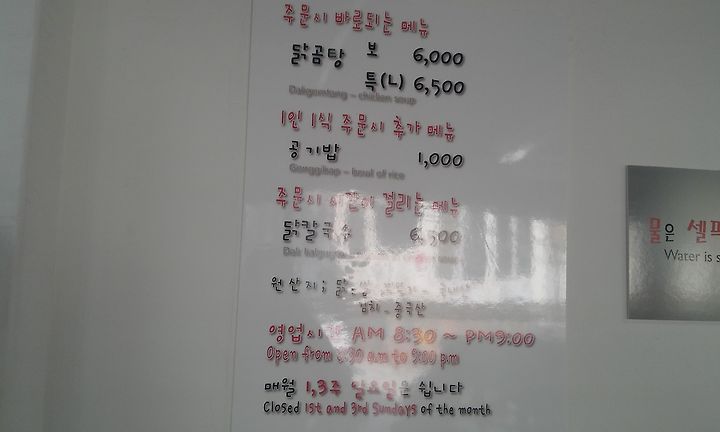 주문시 바로되는 메뉴
닭곰탕 보 6,000
특(L) 6,500
Dakgomtang - chicken soup
1인 1식 주문시 추가 메뉴
공기밥 1,000
Gonggibap - bowl of rice
주문시 시간이 걸리는 메뉴
닭칼국수 6,500
원산지 ; 닭
김치 - 중국산
영업시간 AM 8:30 ~ PM9:00
Open from 8:30 am to 9:00 pm
매월 1,3주 일요일은 쉽니다
Closed 1st and 3rd Sundays of the month
물은 셀프
Water is